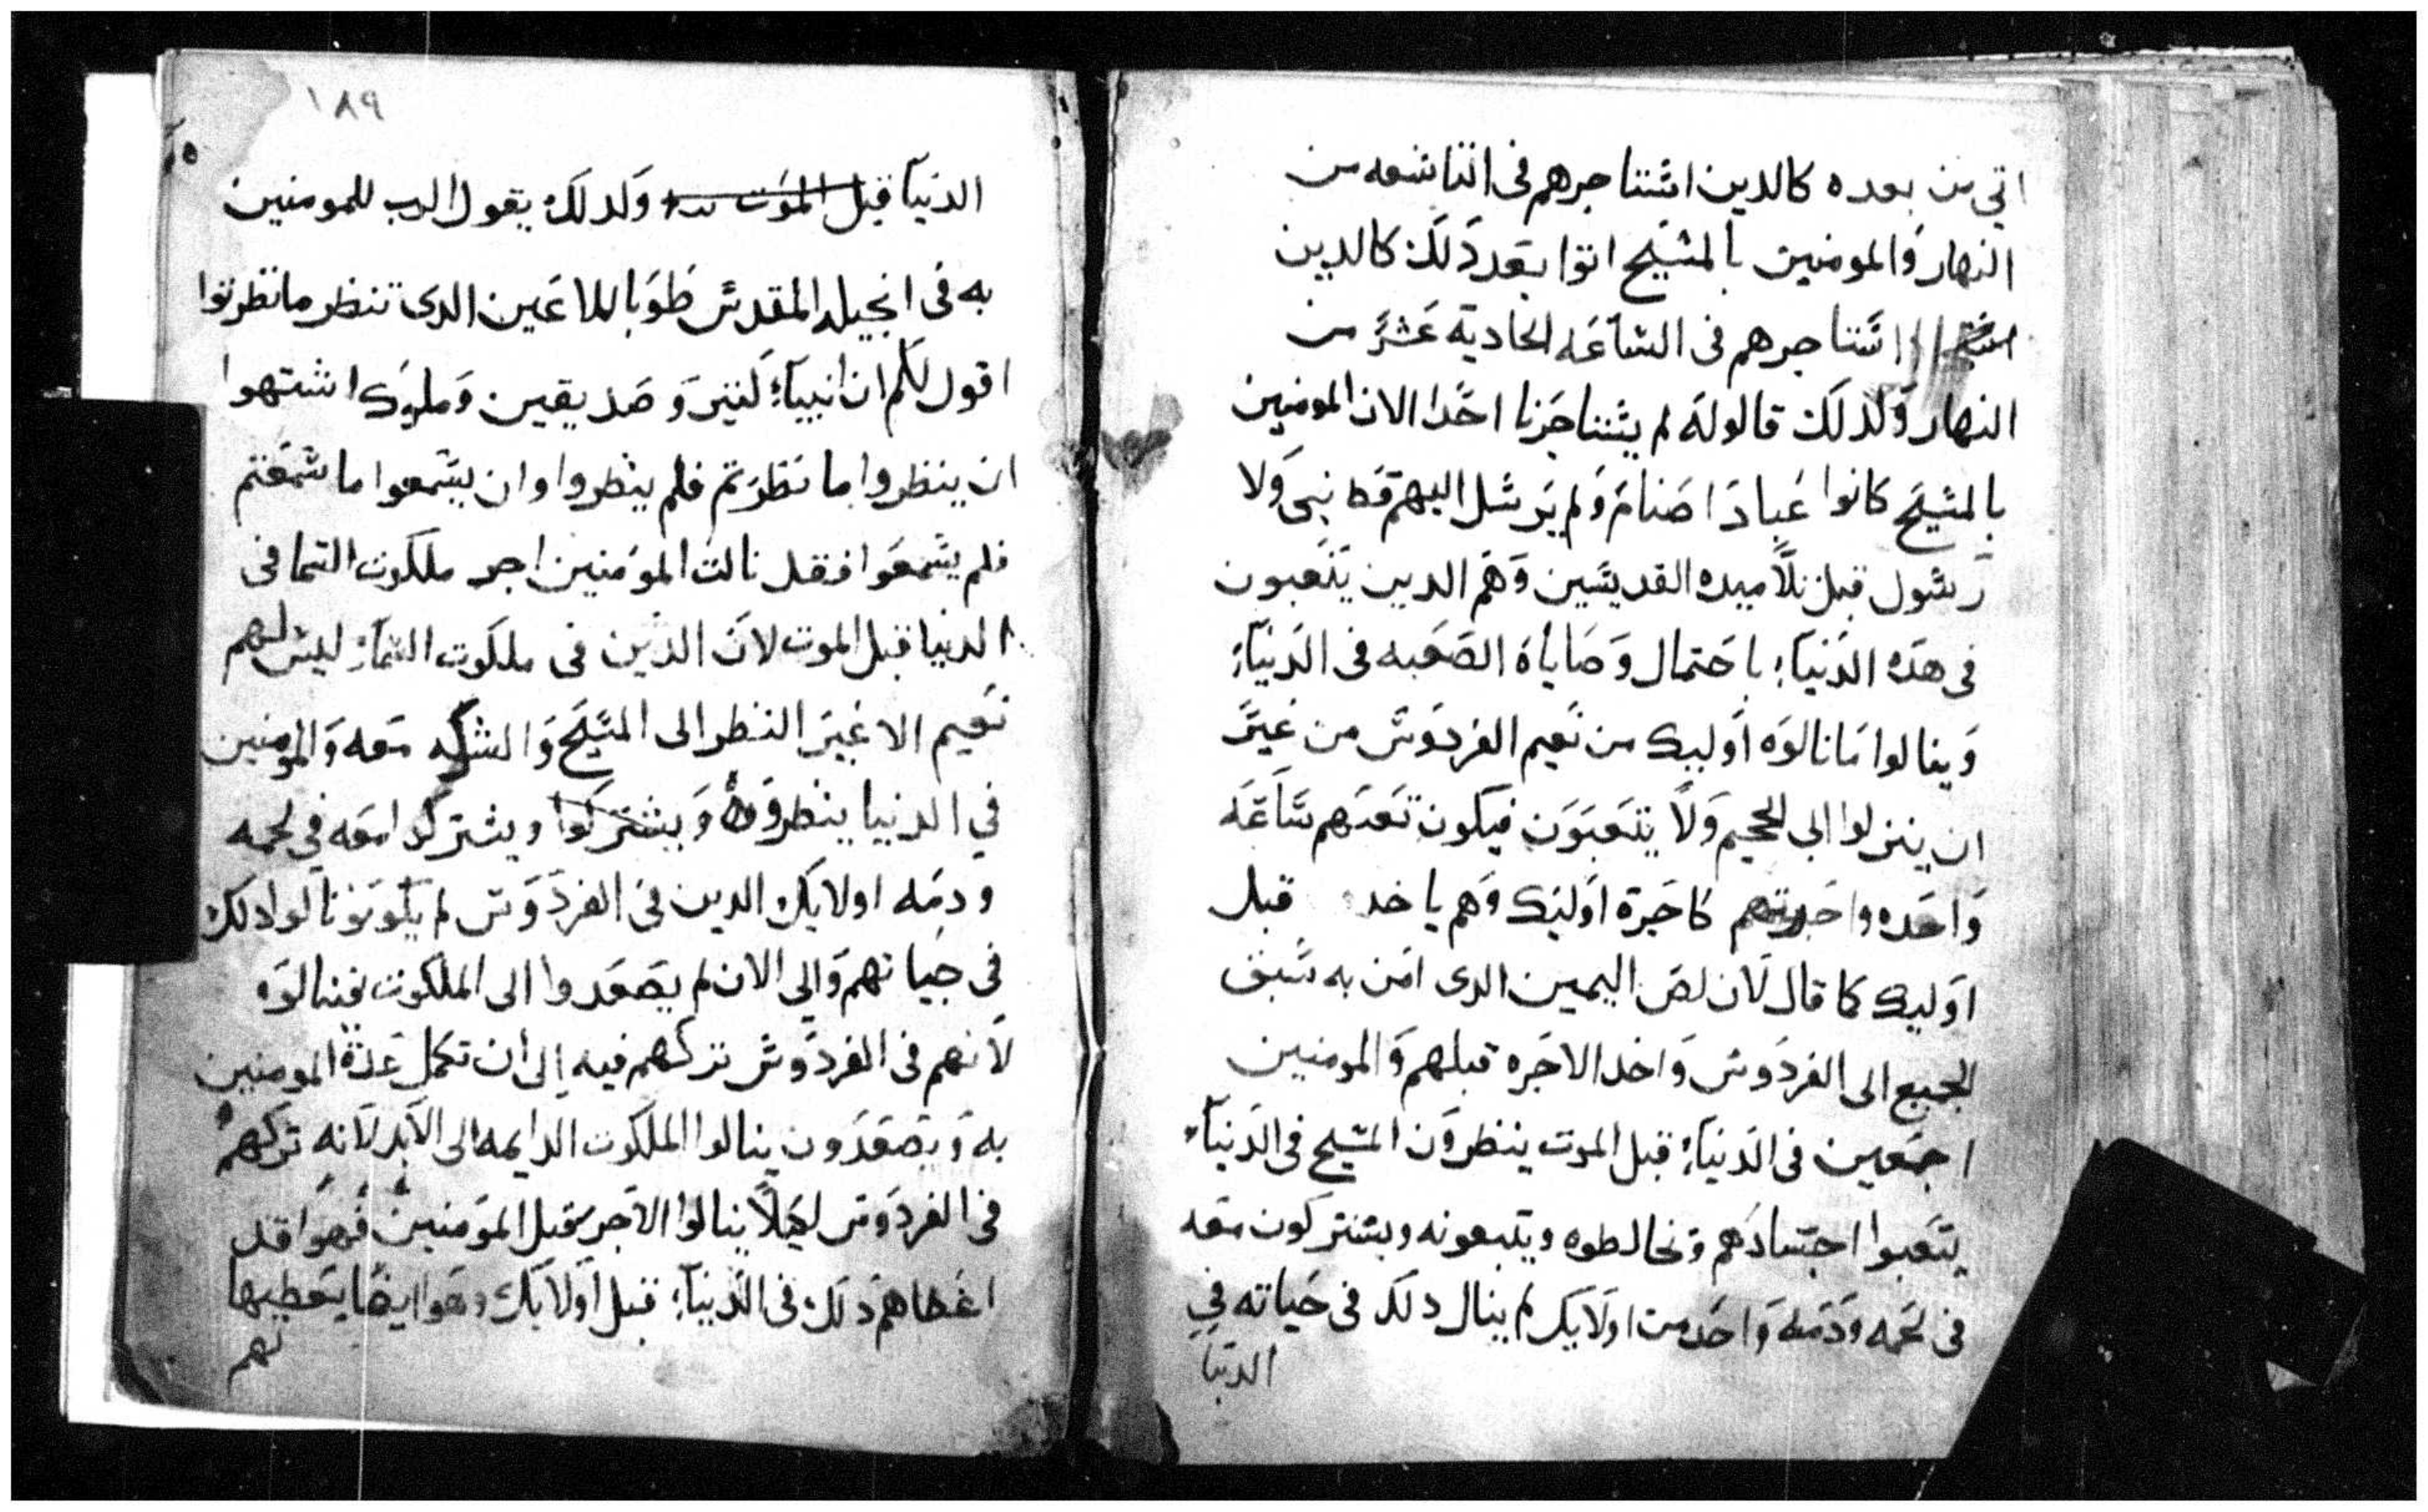 اتي من بعده كالدين اشتناجرهم فى اتتاسعه من
النهار والمومنين بالمسيح اتوا بعد دلك كالدين
اشتناجرهم فى الساعه الحادية عشر من
النهار ولدلك قالوله لم يستناجرنا احدا الان المومنين
بالمسيح كانوا عباد اصنام ولم يرسل اليهم قط نبى ولا
رسول قبل تلاميده القديسين وهم الدين يتعبون
فى هده الدنياء باحتمال وصاياه الصعبه فى الدنياء
وينالوا ما نالوه اوليك من نعيم الفردوس من غير
ان ينزلوا الى الجحيم ولا يتعبون فيكون تعبهم ساعه
واحده واجرتهم كاجرة اوليك وهم ياخد قبل
اوليك كما قال لان لص اليمين الدى امن به سبق
الجميع الى الفردوس واخد الاجره قبلهم والمومنين
اجمعين فى الدنياء قبل الموت ينظرون المسيح فى الدنياء
يتعبوا اجسادهم وتخالطوه ويتبعونه ويشتركون معه
فى لحمه ودمه واحد من اولايك لم ينال دلك فى حياته فى
الدنيا
١٨٩
الدنيا قبل الموت ولدلك يقول الرب للمومنين
به فى انجيله المقدس طوبا للاعين الدى تنظر ما نظرتوا
اقول لكم ان انبياء كتير وصديقين وملوك اشتهوا
ان ينظروا ما نظرتم فلم ينظروا وان يسمعوا ما سمعتم
فلم يسمعوا فقد نالت المومنين اجر ملكوت السما فى
الدنيا قبل الموت لان الدين فى ملكوت السماء ليس لهم
نعيم الا غير النظر الى المسيح والشركه معه والمومنين
في الدنيا ينظروه ويشتركوا ويشتركوا معه في لحمه
ودمه اولايك الدين فى الفردوس لم يكونو نالوا دلك
فى حياتهم والى الان لم يصعدوا الى الملكوت فينالوه
لانهم فى الفردوس تركهم فيه الى ان تكمل عدة المومنين
به ويصعدون ينالوا الملكوت الدايمه الى الابد لانه تركهم
فى الفردوس لكيلا ينالوا الاجر قبل المومنين فهوا قد
اعطاهم دلك فى الدنياء قبل اولايك وهوا ايضا يعطيها
لهم